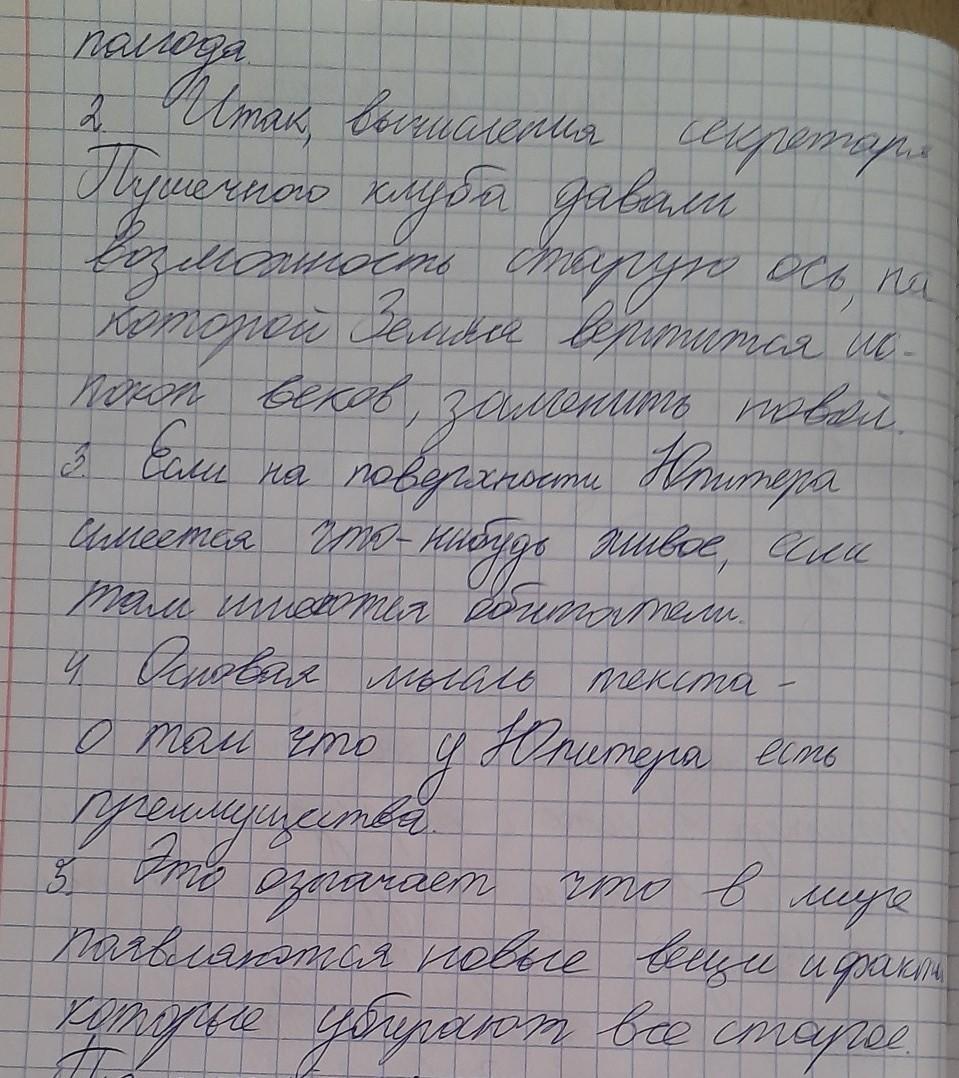 полгода.
2. Итак, вычисления секретаря
Пушечного клуба давали
возможность старую ось, на
которой Земля вертится ис-
покон веков, заменить новой.
3. Если на поверхности Юпитера
имеется что-нибудь живое, если
там имеются обитатели.
4. Основая мысль текста -
о том что у Юпитера есть
преимущества.
5. Это означает что в мире
появляются новые вещи и факты
которые убирают все старое.